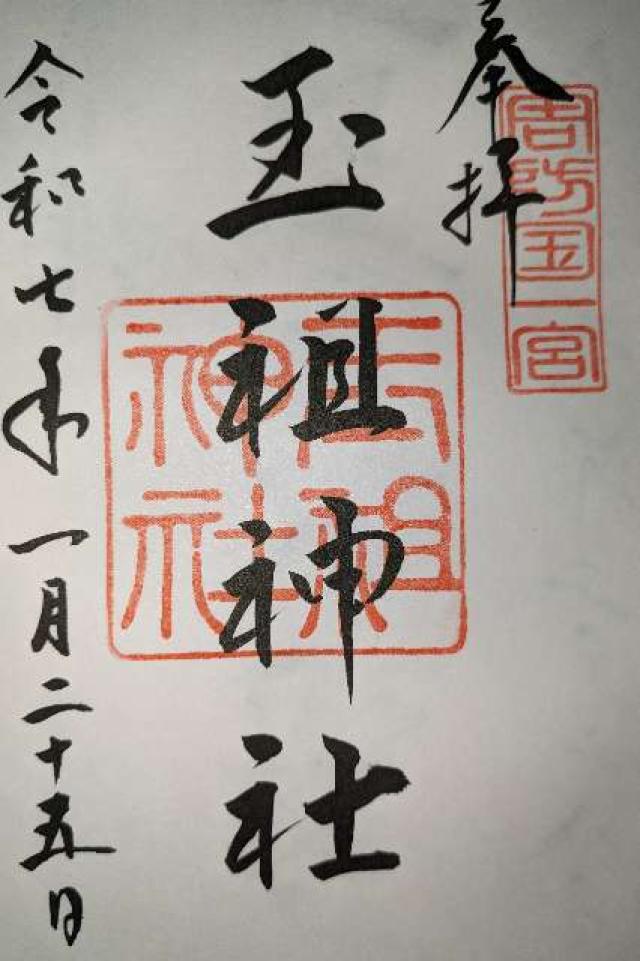 奉拝
周防国一宮
玉祖神社
玉祖神社
令和七年一月二十五日